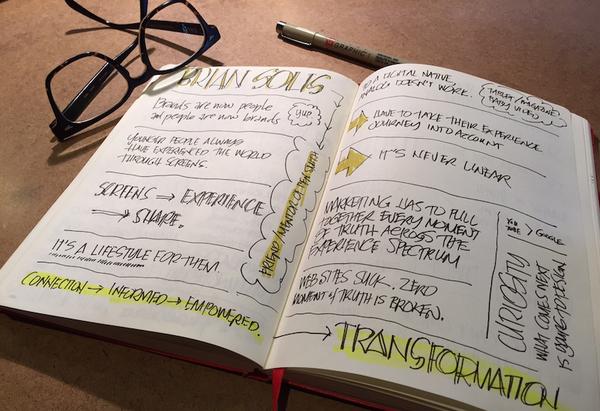 BRIAN SOLIS
Brands are now people
and people are now brands
yup
YOUNGER PEOPLE ALWAYS
HAVE EXPERIENCED THE WORLD
THROUGH SCREENS.
SCREENS → EXPERIENCE
→ SHARE.
IT'S A LIFESTYLE FOR THEM.
CONNECTION → INFORMED → EMPOWERED.
FRIEND/MENTOR OF MEN SMITH
TO A DIGITAL NATIVE
ANALOG DOESN'T WORK.
TABLET/MAGAZINE
BABY VIDEO
HAVE TO TAKE THEIR EXPERIENCE
JOURNEY INTO ACCOUNT
IT'S NEVER LINEAR
MARKETING HAS TO PULL
TOGETHER EVERY MOMENT
OF TRUTH ACROSS THE
EXPERIENCE SPECTRUM
WEB SITES SUCK. ZERO
MOMENT of TRUTH IS BROKEN.
YOU TUBE > GOOGLE
CURIOSITY
WHAT COMES NEXT
IS GOING TO DESIGN
→ TRANSFORMATION
GRAPHIC